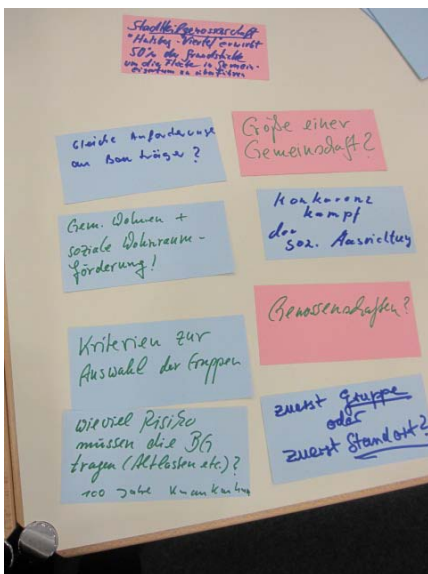 Stadtteilgenossenschaft
"Hulsberg-Viertel" erwirbt
50% der Grundstücke
um die Fläche in Gemein-
eigentum zu überführen
Gleiche Anforderungen
an Bauträger?
Größe einer
Gemeinschaft?
Gem. Wohnen +
soziale Wohnraum-
förderung!
Konkurenz
kampf
der
soz. Ausrichtung
Kriterien zur
Auswahl der Gruppen
Genossenschaften?
wieviel Risiko
müssen die BG
tragen (Altlasten etc.)?
100 Jahre Krankenhaus
zuerst Gruppe
oder
zuerst Standort?